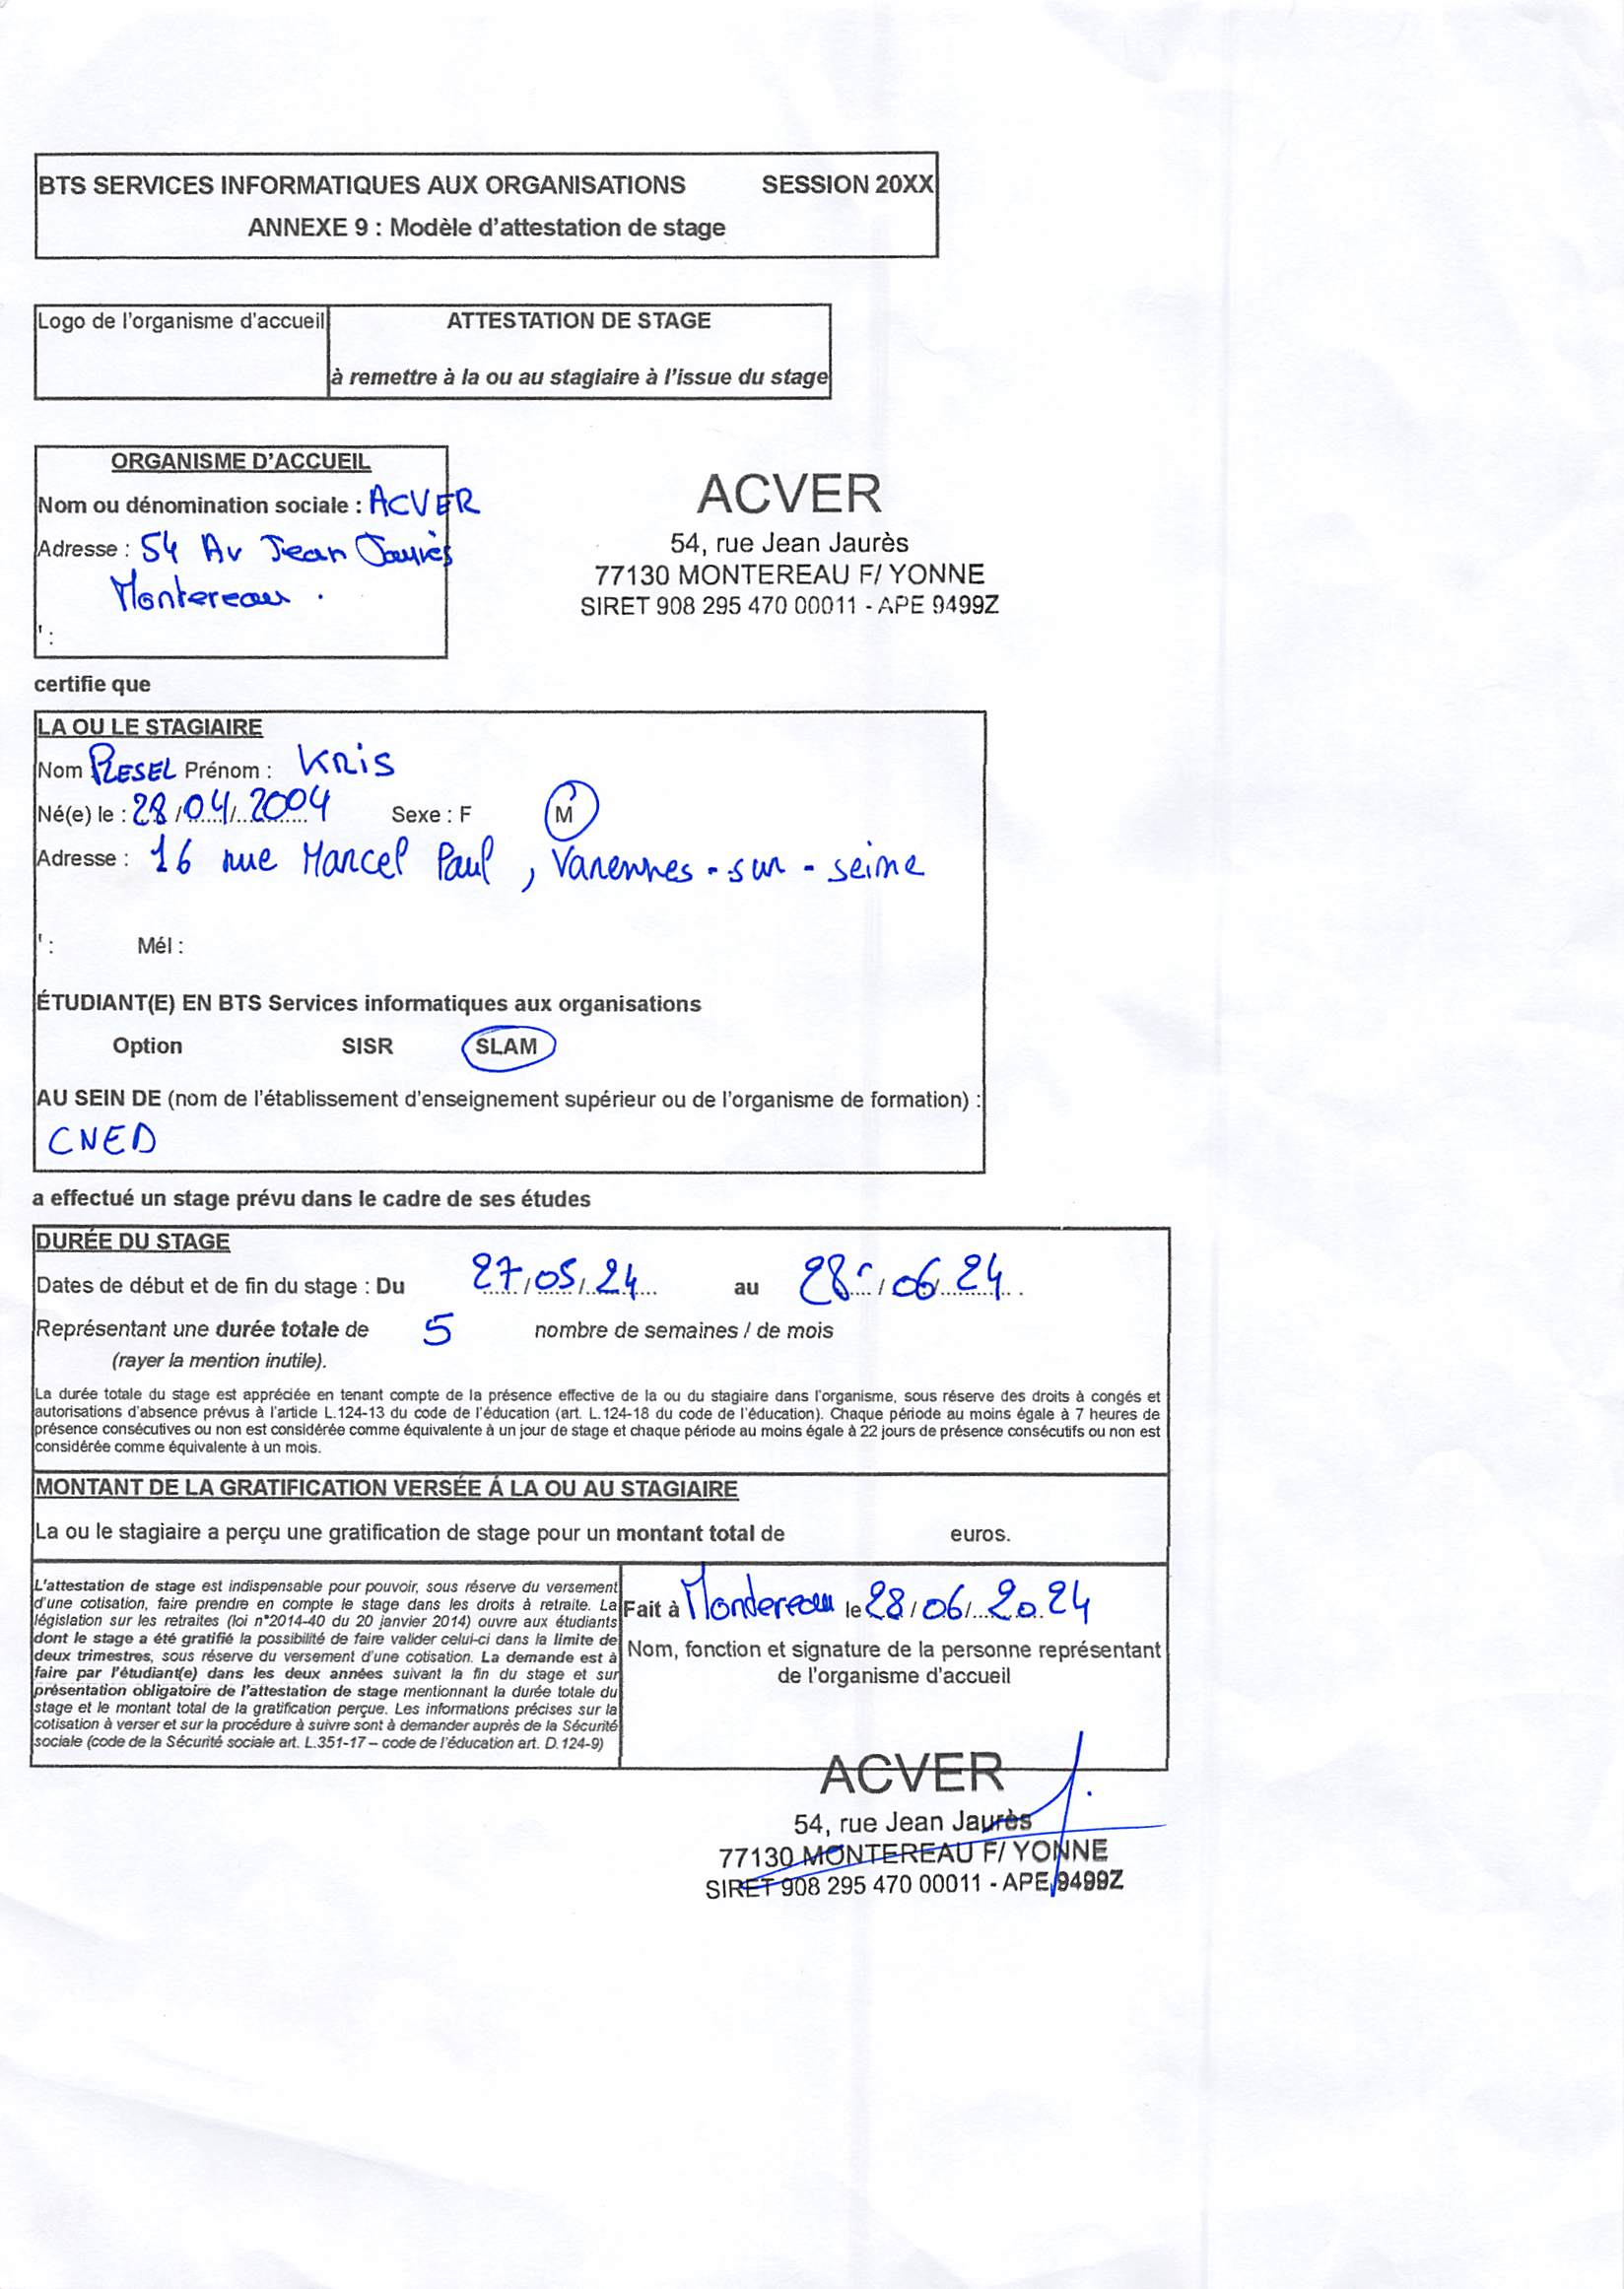 BTS SERVICES INFORMATIQUES AUX ORGANISATIONS SESSION 20XX
ANNEXE 9 : Modèle d'attestation de stage
Logo de l'organisme d'accueil
ATTESTATION DE STAGE
à remettre à la ou au stagiaire à l'issue du stage
ORGANISME D'ACCUEIL
Nom ou dénomination sociale : ACVER
Adresse : 54 Av Jean Jaurès
Montereau .
' :
ACVER
54, rue Jean Jaurès
77130 MONTEREAU F/ YONNE
SIRET 908 295 470 00011 - APE 9499Z
certifie que
LA OU LE STAGIAIRE
Nom RESEL Prénom : KRIS
Né(e) le : 28/04/2004 Sexe : F M
Adresse : 16 rue Marcel Paul , Varennes-sur-seine
' : Mél :
ÉTUDIANT(E) EN BTS Services informatiques aux organisations
Option SISR SLAM
AU SEIN DE (nom de l'établissement d'enseignement supérieur ou de l'organisme de formation) :
CNED
a effectué un stage prévu dans le cadre de ses études
DURÉE DU STAGE
Dates de début et de fin du stage : Du 27/05/24 au 28/06/24
Représentant une durée totale de 5 nombre de semaines / de mois
(rayer la mention inutile).
La durée totale du stage est appréciée en tenant compte de la présence effective de la ou du stagiaire dans l'organisme, sous réserve des droits à congés et
autorisations d'absence prévus à l'article L.124-13 du code de l'éducation (art. L.124-18 du code de l'éducation). Chaque période au moins égale à 7 heures de
présence consécutives ou non est considérée comme équivalente à un jour de stage et chaque période au moins égale à 22 jours de présence consécutifs ou non est
considérée comme équivalente à un mois.
MONTANT DE LA GRATIFICATION VERSÉE Á LA OU AU STAGIAIRE
La ou le stagiaire a perçu une gratification de stage pour un montant total de euros.
L'attestation de stage est indispensable pour pouvoir, sous réserve du versement
d'une cotisation, faire prendre en compte le stage dans les droits à retraite. La
législation sur les retraites (loi n°2014-40 du 20 janvier 2014) ouvre aux étudiants
dont le stage a été gratifié la possibilité de faire valider celui-ci dans la limite de
deux trimestres, sous réserve du versement d'une cotisation. La demande est à
faire par l'étudiant(e) dans les deux années suivant la fin du stage et sur
présentation obligatoire de l'attestation de stage mentionnant la durée totale du
stage et le montant total de la gratification perçue. Les informations précises sur la
cotisation à verser et sur la procédure à suivre sont à demander auprès de la Sécurité
sociale (code de la Sécurité sociale art. L.351-17 – code de l'éducation art. D.124-9)
Fait à Montereau le 28/06/2024
Nom, fonction et signature de la personne représentant
de l'organisme d'accueil
ACVER
54, rue Jean Jaurès
77130 MONTEREAU F/ YONNE
SIRET 908 295 470 00011 - APE 9499Z